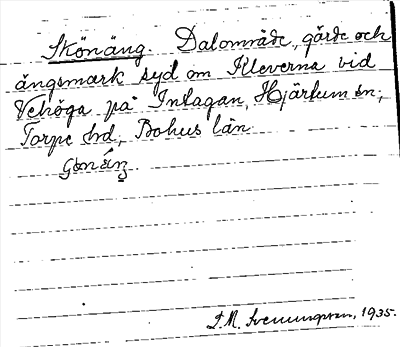 Skönäng. Dalområde, gärde och
ängsmark syd om Kleverna vid
Vehöga på Intagan, Hjärtum sn,
Torpe hd, Bohus län
1935.